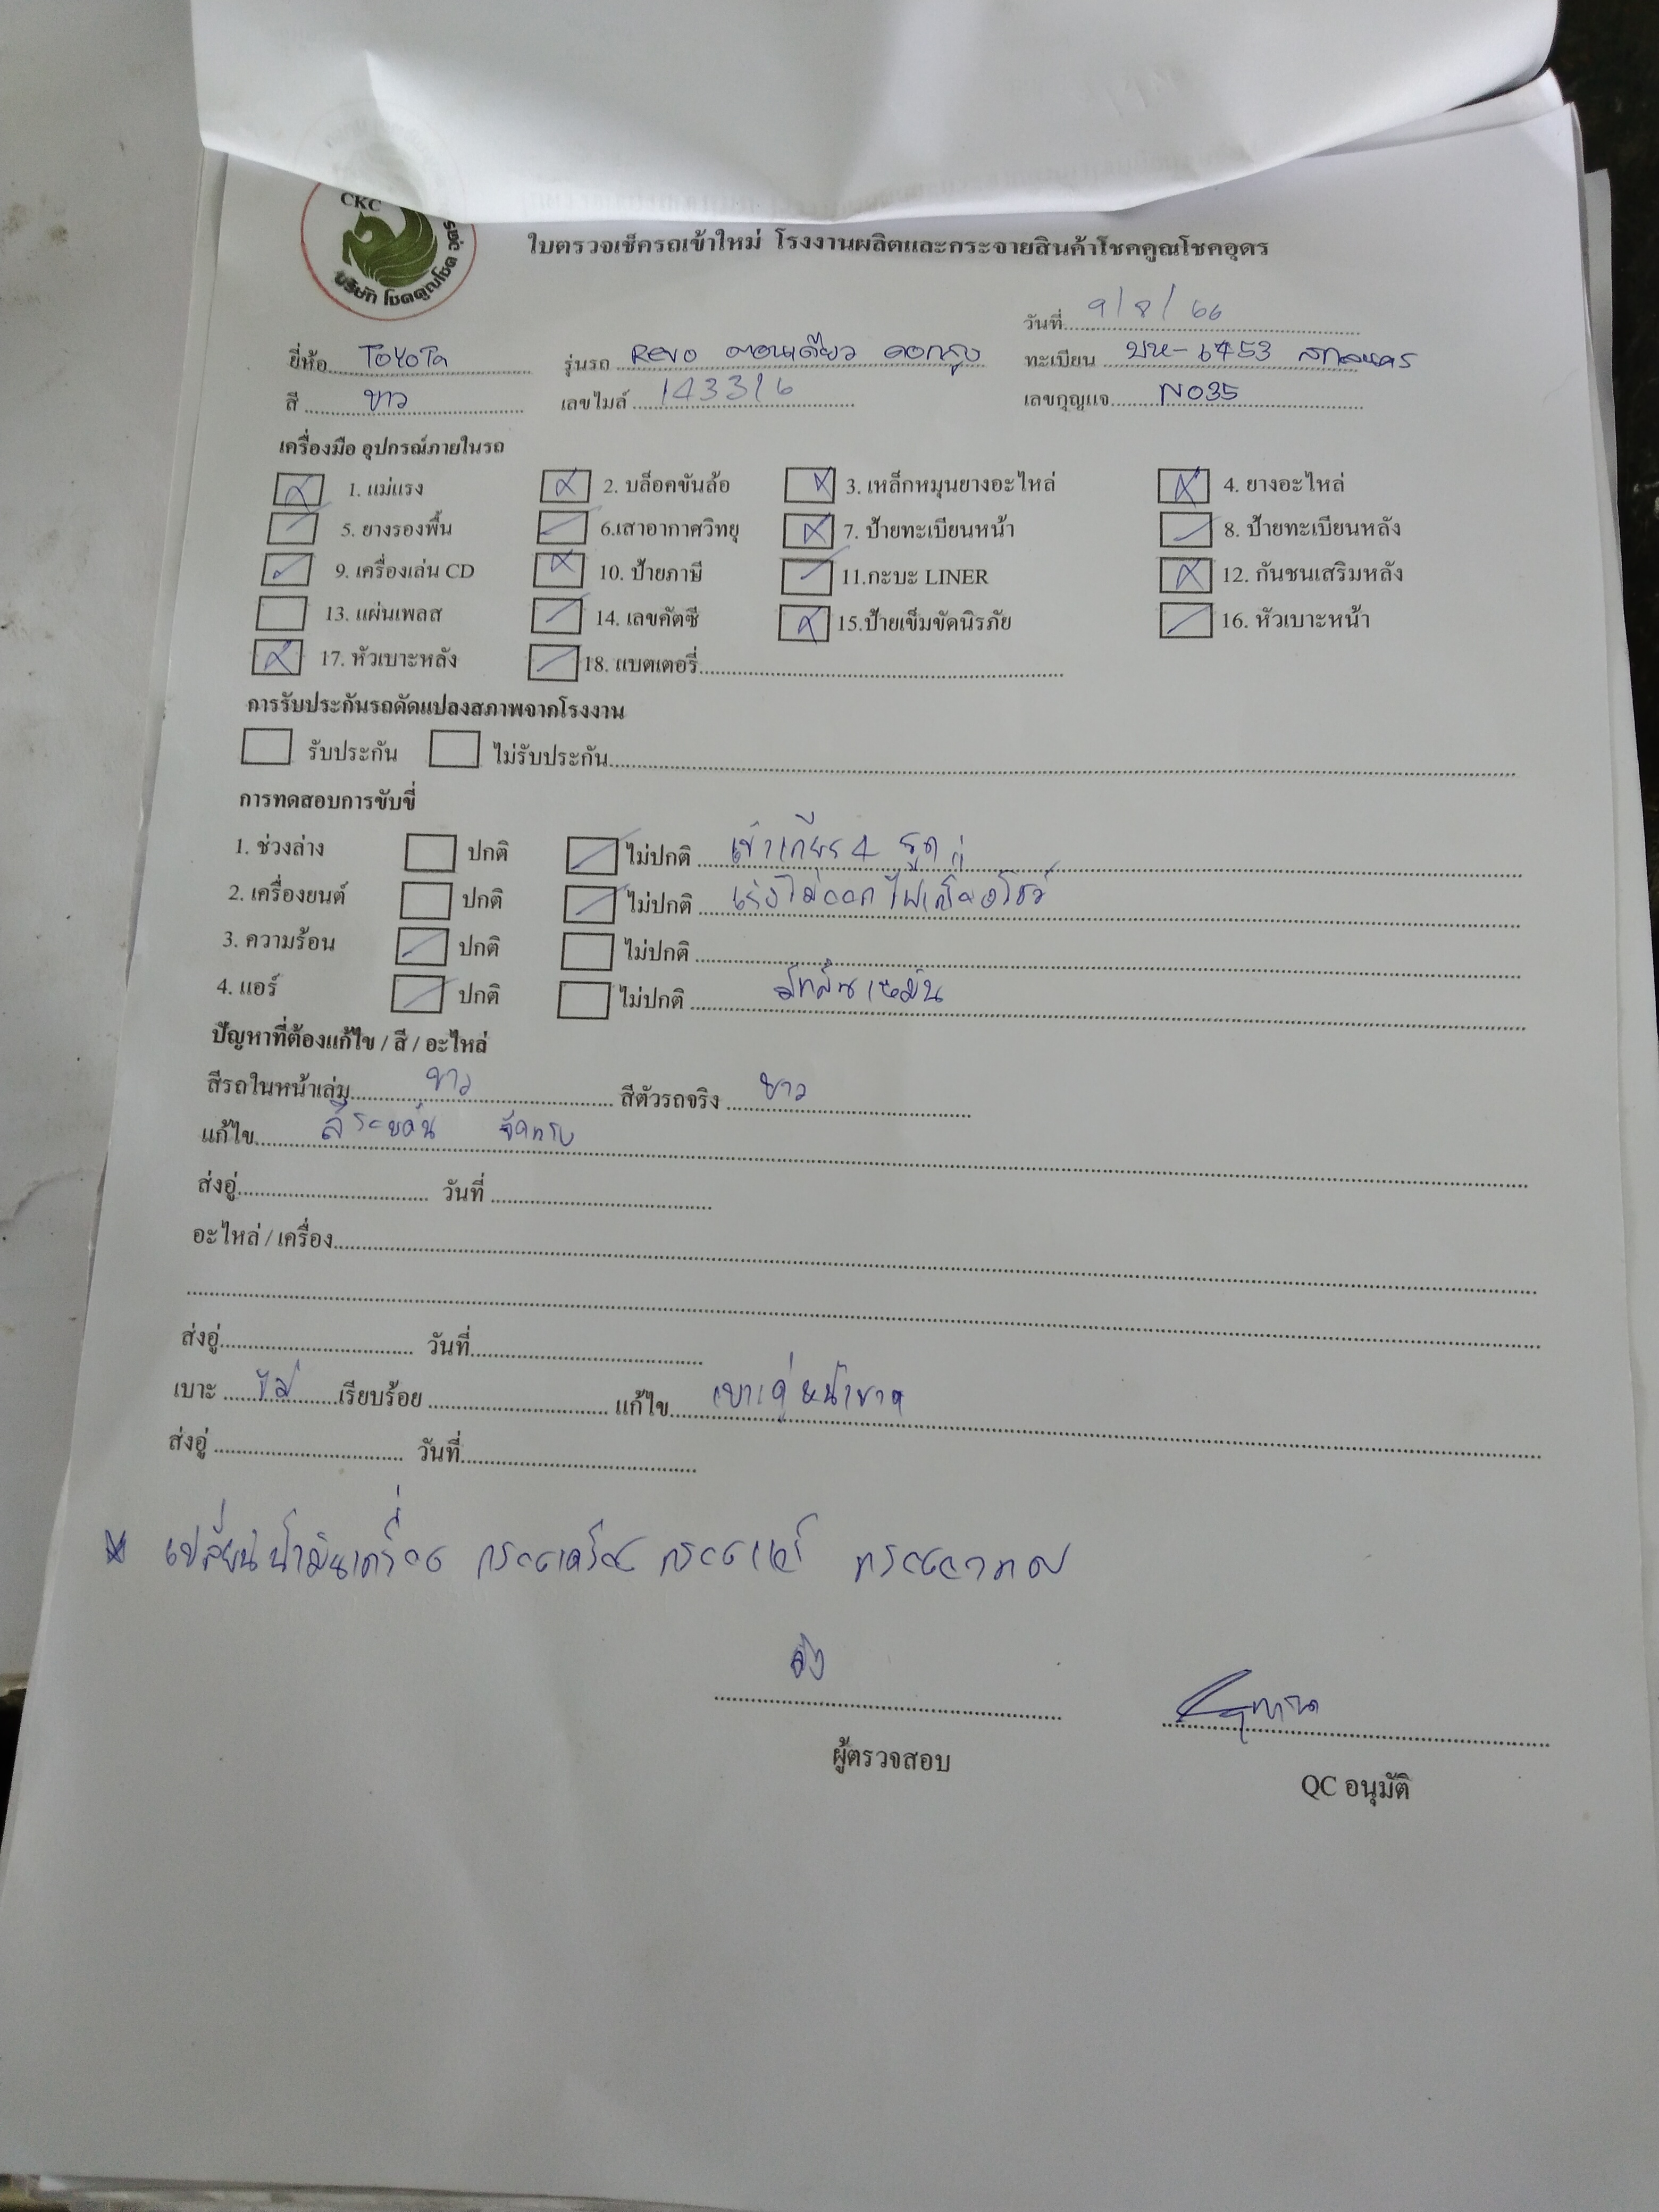 CKC
บริษัท โชคคูณโชค
ใบตรวจเช็ครถเข้าใหม่ โรงงานผลิตและกระจายสินค้าโชคคูณโชคอุดร
วันที่ 9/8/66
ยี่ห้อ TOYOTA รุ่นรถ Revo ตอนเดียว ทะเบียน บห-6453 สกลนคร
สี ขาว เลขไมล์ 143316 เลขกุญแจ NO35
เครื่องมือ อุปกรณ์ภายในรถ
1. แม่แรง 2. บล็อคขันล้อ 3. เหล็กหมุนยางอะไหล่ 4. ยางอะไหล่
5. ยางรองพื้น 6.เสาอากาศวิทยุ 7. ป้ายทะเบียนหน้า 8. ป้ายทะเบียนหลัง
9. เครื่องเล่น CD 10. ป้ายภาษี 11.กะบะ LINER 12. กันชนเสริมหลัง
13. แผ่นเพลส 14. เลขคัตซี 15.ป้ายเข็มขัดนิรภัย 16. หัวเบาะหน้า
17. หัวเบาะหลัง 18. แบตเตอรี่
การรับประกันรถดัดแปลงสภาพจากโรงงาน
รับประกัน ไม่รับประกัน
การทดสอบการขับขี่
1. ช่วงล่าง ปกติ ไม่ปกติ เข้าเกียร 4
2. เครื่องยนต์ ปกติ ไม่ปกติ เร่งไม่ออก ไฟเครื่องโชว์
3. ความร้อน ปกติ ไม่ปกติ
4. แอร์ ปกติ ไม่ปกติ มีกลิ่นเหม็น
ปัญหาที่ต้องแก้ไข / สี / อะไหล่
สีรถในหน้าเล่ม ขาว สีตัวรถจริง ขาว
แก้ไข
ส่งอู่ วันที่
อะไหล่ / เครื่อง
ส่งอู่ วันที่
เบาะ ไม่ เรียบร้อย แก้ไข เบาะคู่หน้าขาด
ส่งอู่ วันที่
* เปลี่ยนน้ำมันเครื่อง กรองเครื่อง กรองแอร์ กรองอากาศ
ผู้ตรวจสอบ
QC อนุมัติ